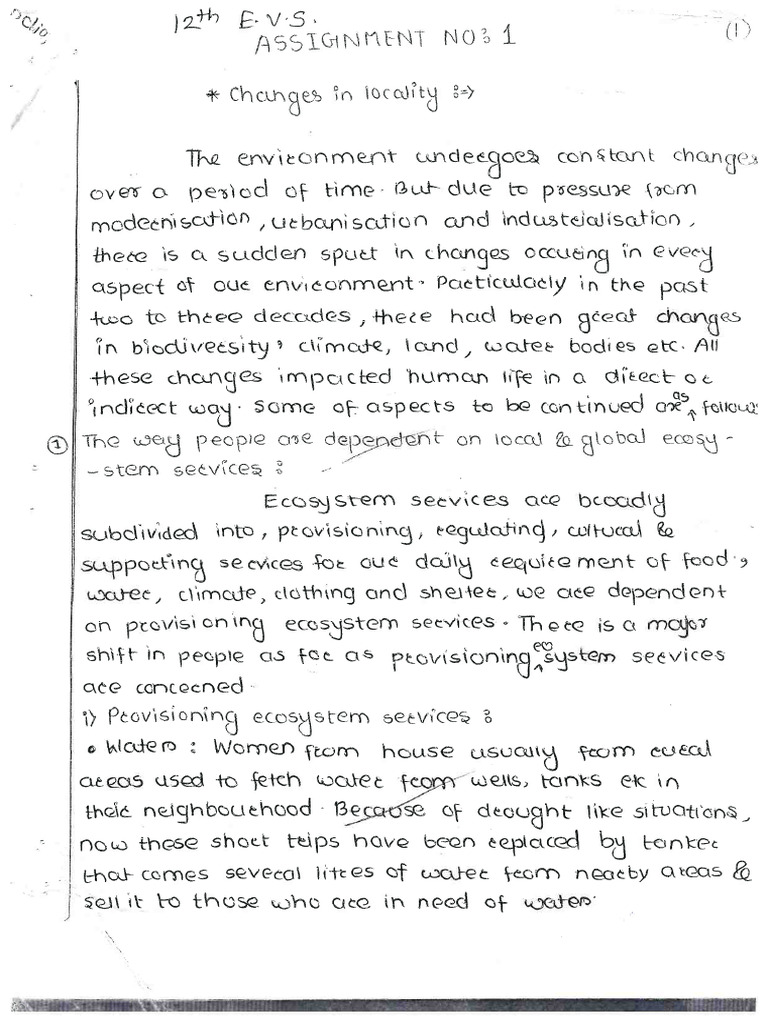 12th E.V.S.
(1)
ASSIGNMENT NO: 1
* Changes in locality :->
The environment undergoes constant changes
over a period of time. But due to pressure from
modernisation, urbanisation and industrialisation,
there is a sudden spurt in changes occuring in every
aspect of our environment. Particularly in the past
two to three decades, there had been great changes
in biodiversity, climate, land, water bodies etc. All
these changes impacted human life in a direct or
indirect way. Some of aspects to be continued are as follows
① The way people are dependent on local & global ecosy-
-stem services :
Ecosystem services are broadly
subdivided into, provisioning, regulating, cultural &
supporting services for our daily requirement of food,
water, climate, clothing and shelter, we are dependent
on provisioning ecosystem services. There is a major
shift in people as far as provisioning eco system services
are concerned.
i) Provisioning ecosystem services :
• Water : Women from house usually from rural
areas used to fetch water from wells, tanks etc in
their neighbourhood. Because of drought like situations,
now these short trips have been replaced by tanker
that comes several litres of water from nearby areas &
sell it to those who are in need of water.